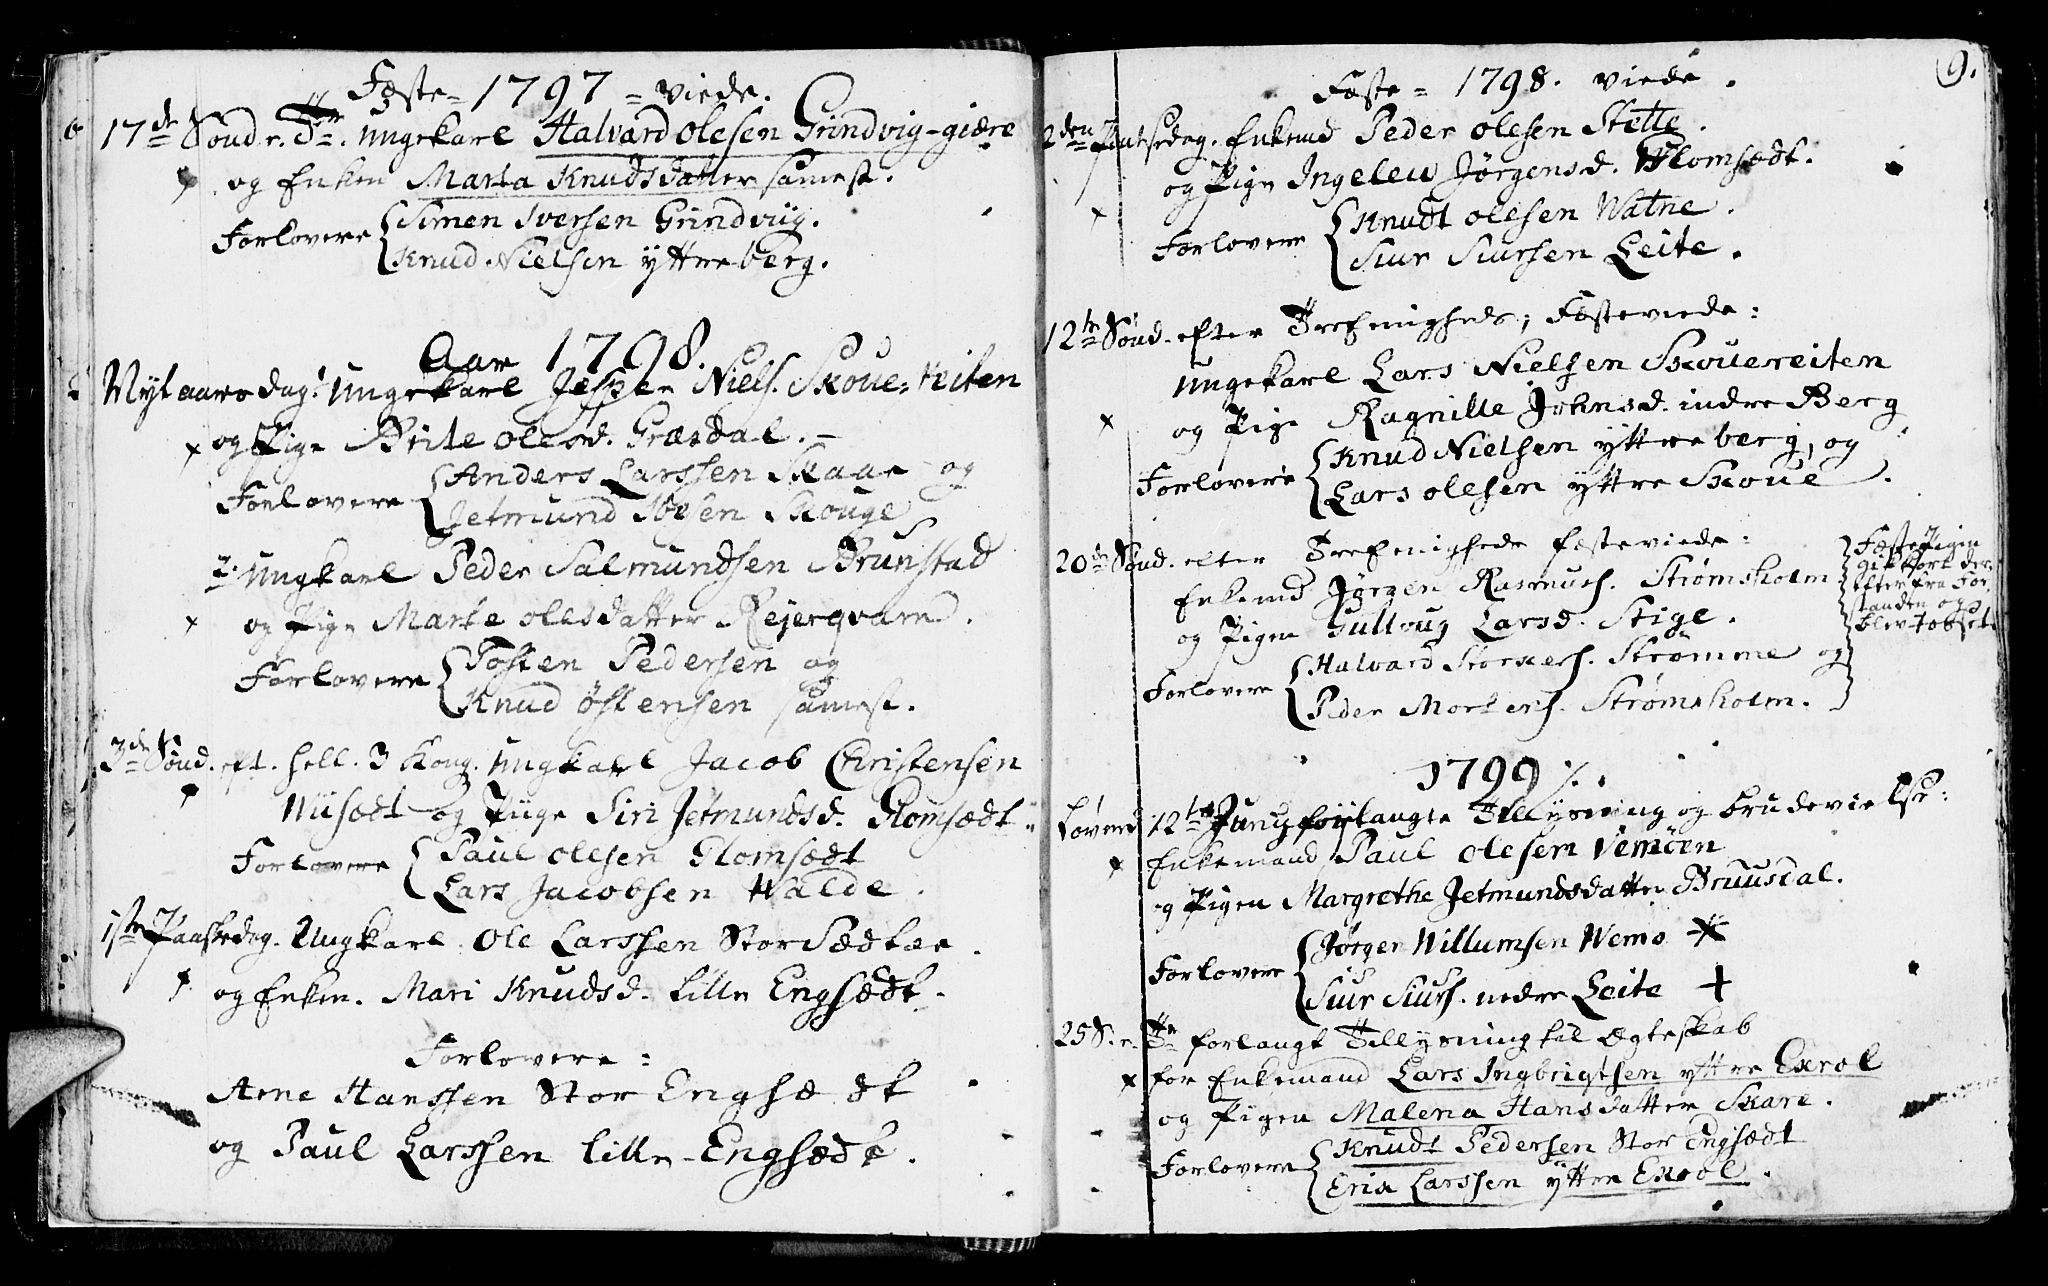 Fæste- 1797 = viede.
17de Sönd. e. Tr. ungekarl Halvard Olesen Grindvig-giære
og Enken Marta Knudsdatter samest.
Forlovere Simen Iversen Grindviig.
Knud Nielsen yttreberg.
Aar 1798.
Nyt aars dag: ungekarl Jesper Niels. Skoue-Reiten
og Pige Brite olesd. Græsdal.
Forlovere Anders Larssen Skaar og
Jetmund Skouge
2. ungkarl Peder Salmundsen Brunstad
og Pige Marte olesdatter Rejerqvam.
Forlovere Tosten Pedersen og
Knud Østensen samest.
3de Sönd. eft. hell. 3 Kong. ungkarl Jacob Christensen
Wiisædt og Piige Siri Jetmundsd. Glomsædt
Forlovere Paul olesen Glomsædt
Lars Jacobsen Halde.
1ste Paaskedag. Ungkarl Ole Larssen Stor Sædtær
og Enken. Mari Knudsd. Lille Engsædt.
Forlovere:
Arne Hanssen Stor Engsædt
og Paul Larssen Lille-Engsædt.
9.
Fæste = 1798. viede.
2den Pintsedag. Enkemd Peder olesen Stette.
og Pige Ingeleu Jørgensd. Blomsædt.
Forlovere Knudt olesen Watne.
Siur Siursen Leite.
12te Sönd. efter Trefoenigheds; Fæsteviede:
ungekarl Lars Nielsen Skouereiten
og Pige Ragnille Johnsd. indre Berg
Forlovere Knud Nielsen yttre berg, og
Lars olesen yttre Skoue.
20de Sönd. efter Trefoenigheds fæsteviede:
Enkemd Jørgen Rasmus. Strømsholm
og Pigen Gulloug Larsd. Stige.
Forlovere Halvard Storkers. Strømme og
Peder Mortens. Strømsholm.
Fæste Pigen
gik bort der
efter fra For
standen og
blev
1799 /.
Løverd 12te Januj forlangte Tillysning og brudevielse:
Enkemand Paul Olesen Vemöen
og Pigen Margrethe Jetmundsdatter Bruusdal.
Forlovere Jørgen Willumsen Wemo
Siur Siurs. nedre Leite +
25 S. e. Tr forlangt Tillysning til Ægteskab
for Enkemand Lars Ingbrigtsen yttre Exrol
og Pigen Malena Hansdatter Skare.
Forlovere Knudt Pedersen Stor Engsædt
Erix Larssen yttre Exrol.